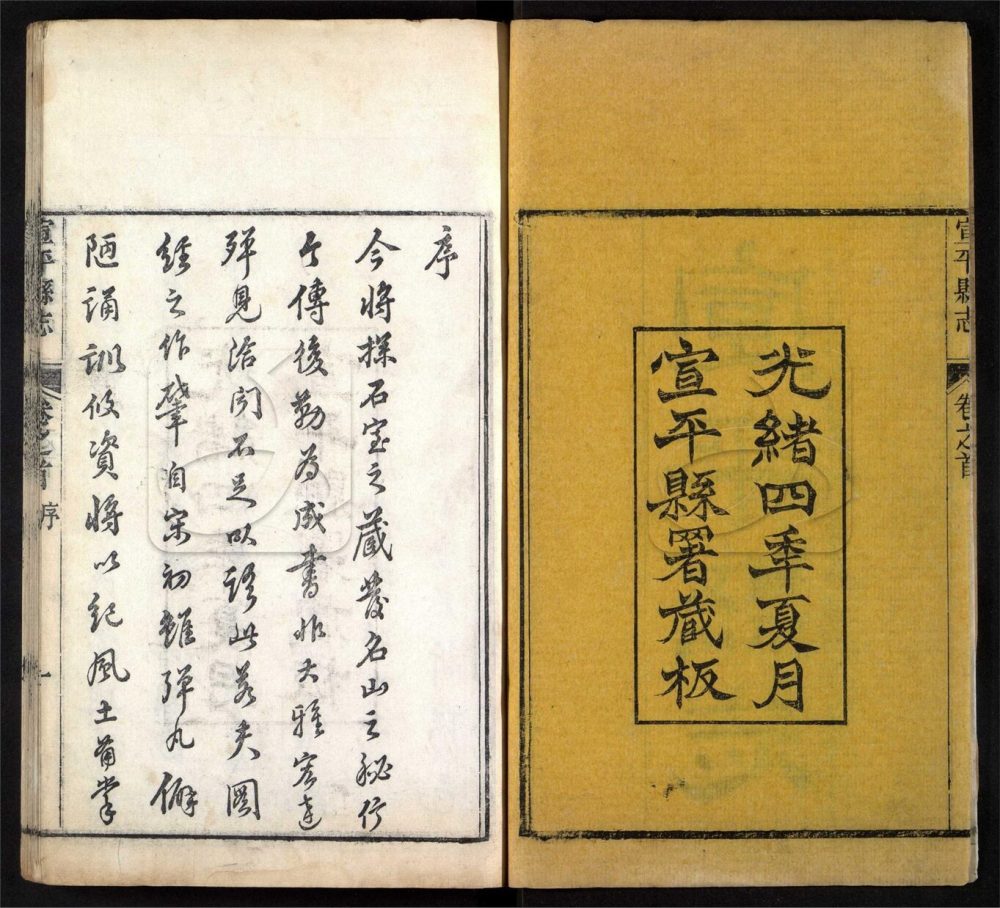 宣平縣志
卷之首
光緒四年夏月
宣平縣署藏板
序
今將探石室之藏發名山之祕行
久傳後勒為成書非大雅宏達
殫見洽聞不足以語此若夫圖
經之作肇自宋初雖彈丸僻
陋誦訓攸資將以紀風土備掌
宣平縣志
卷之首
序
一